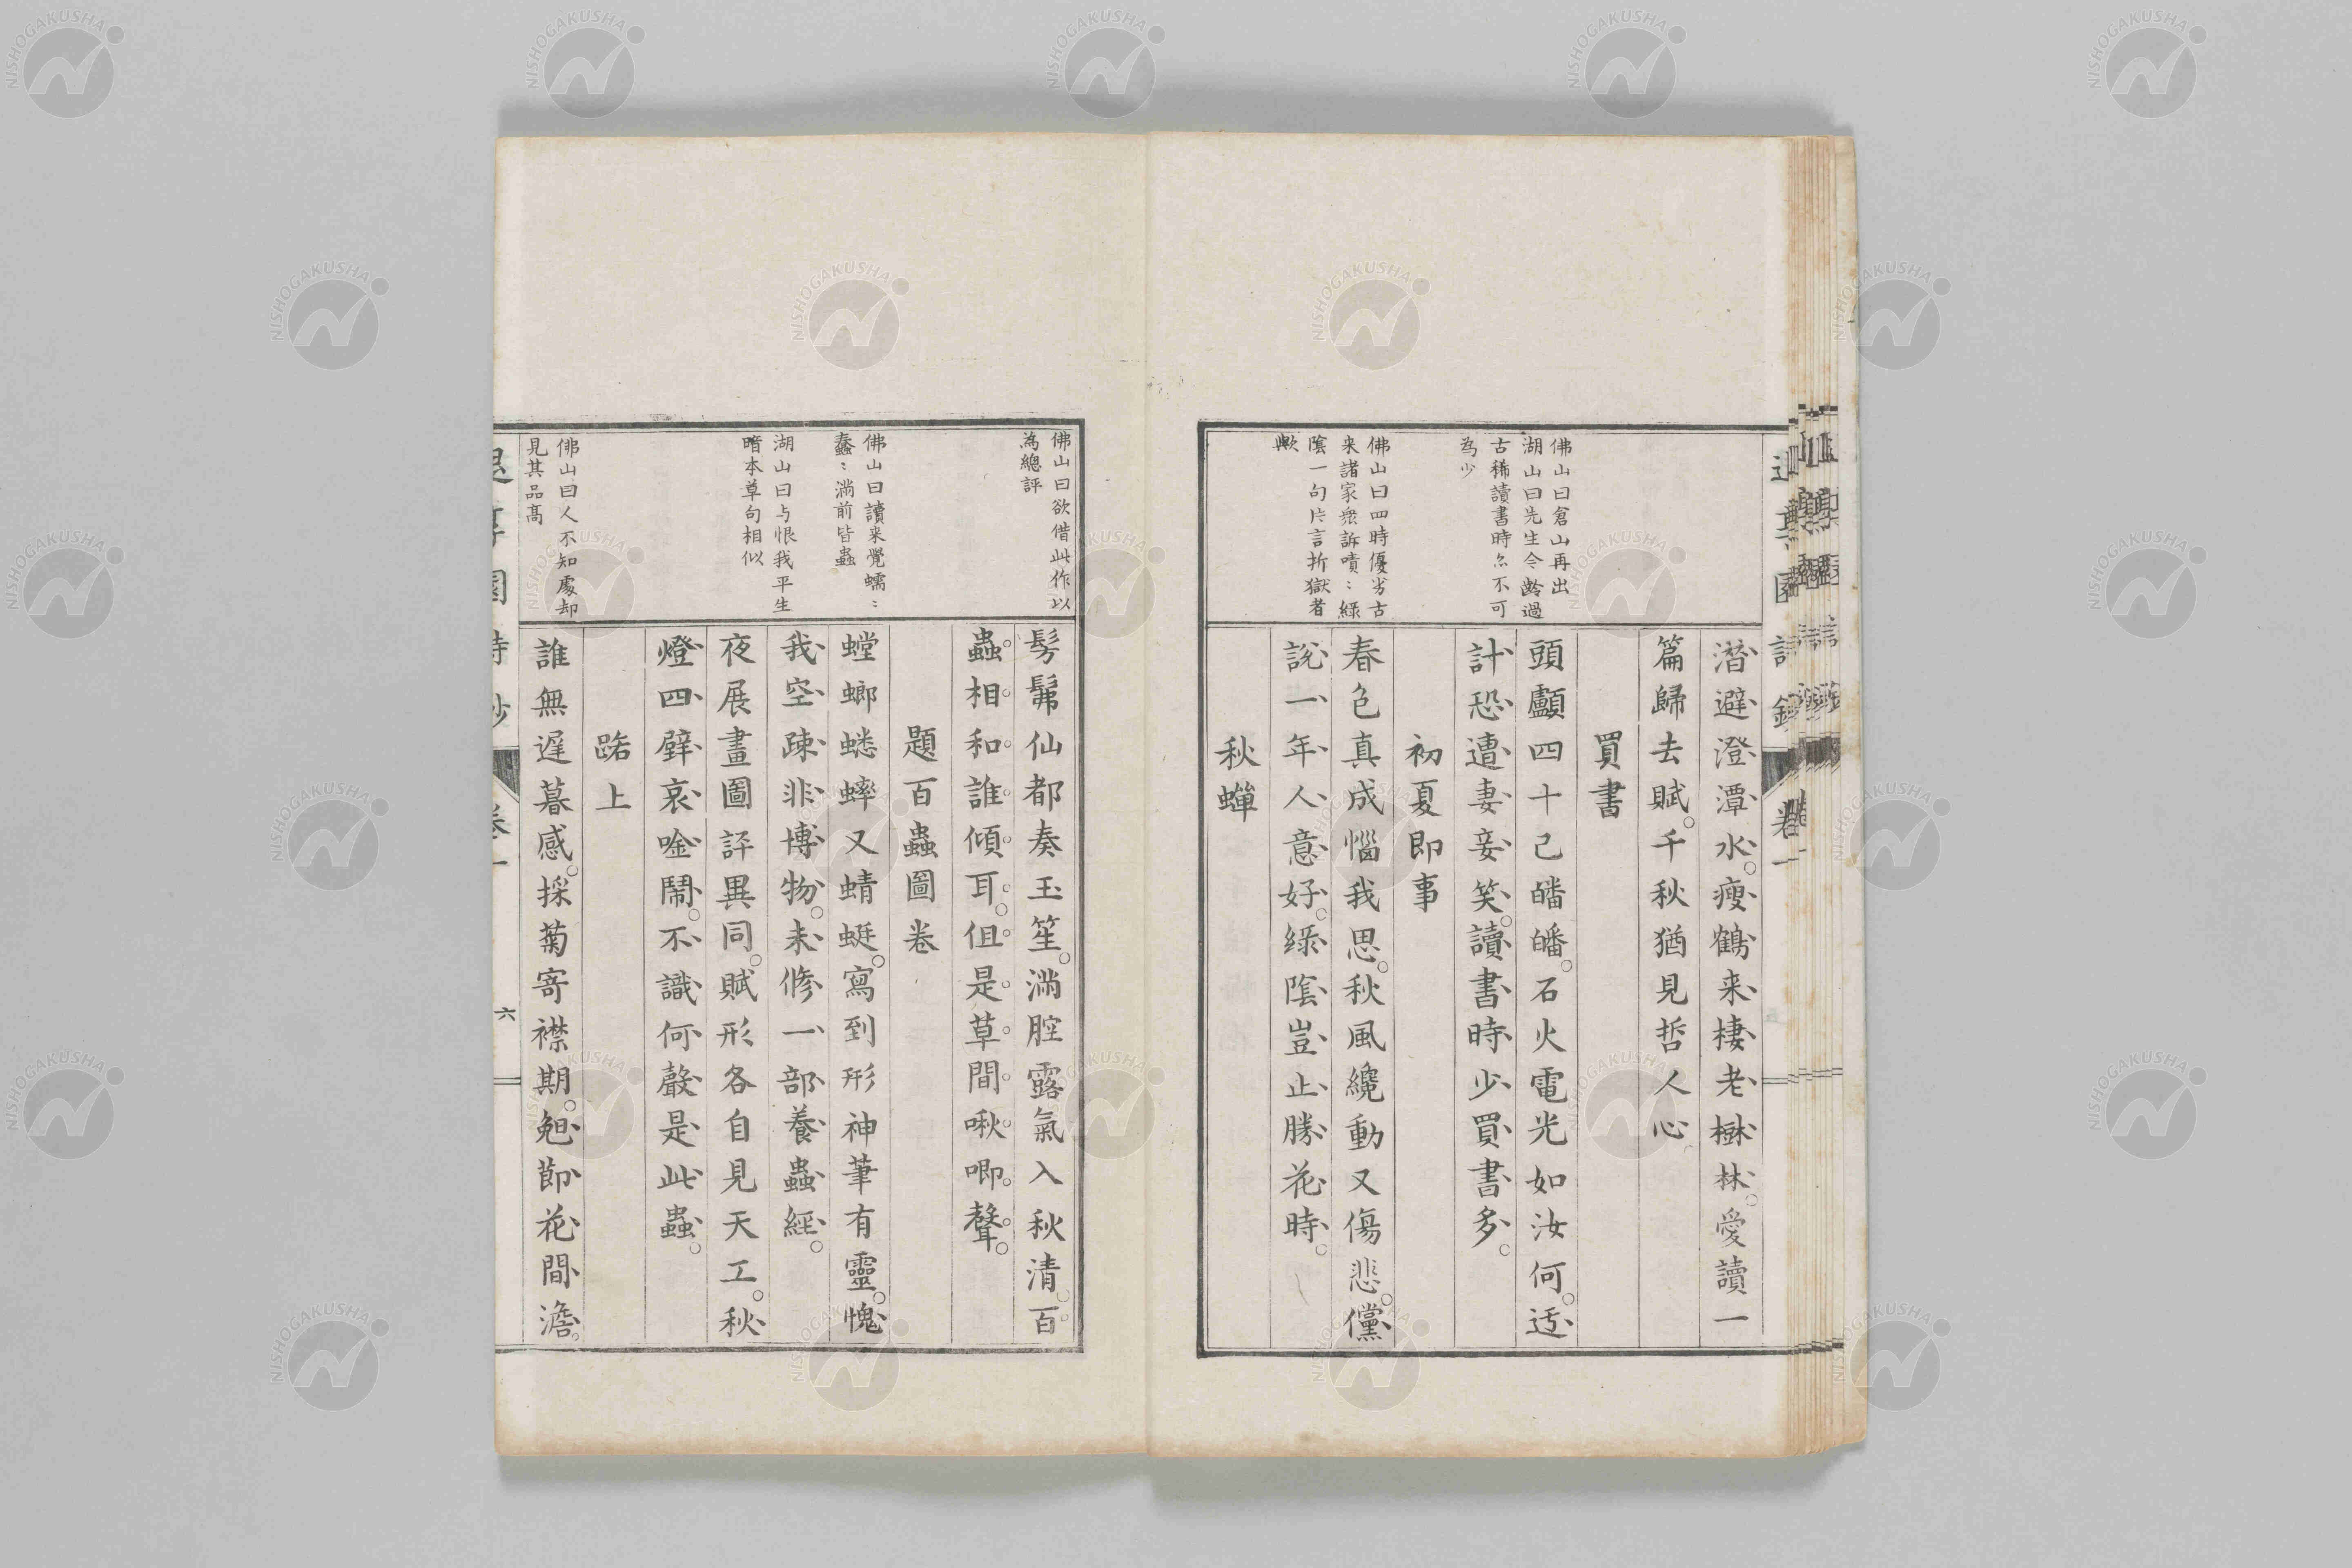 潛避澄潭水瘦鶴来棲老樾林愛讀一
篇歸去賦千秋猶見哲人心
買書
佛山曰倉山再出
湖山曰先生今齡過
古稀讀書時尓不可
為少
頭顱四十已皤皤石火電光如汝何迃
計恐遭妻妾笑讀書時少買書多
初夏即事
佛山曰四時優劣古
来諸家衆訴嘖〻綠
陰一句片言折獄者
歟
春色真成惱我思秋風纔動又傷悲儻
說一年人意好綠陰豈止勝花時
秋蟬
佛山曰欲借此作以
為總評
髣髴仙都奏玉笙滿腔露氣入秋清百
蟲相和誰傾耳但是草間啾喞聲
題百蟲圖卷
佛山曰讀来覺蠕〻
蠢〻滿前皆蟲
湖山曰与恨我平生
暗本草句相似
螳螂蟋蟀又蜻蜓寫到形神筆有靈愧
我空疎非博物未修一部養蟲經
夜展畫圖評異同賦形各自見天工秋
燈四壁哀唫鬧不識何聲是此蟲
詻上
佛山曰人不知處却
見其品高
誰無遲暮感採菊寄襟期兔節花間澹
卷一
六
NISHOGAKUSHA